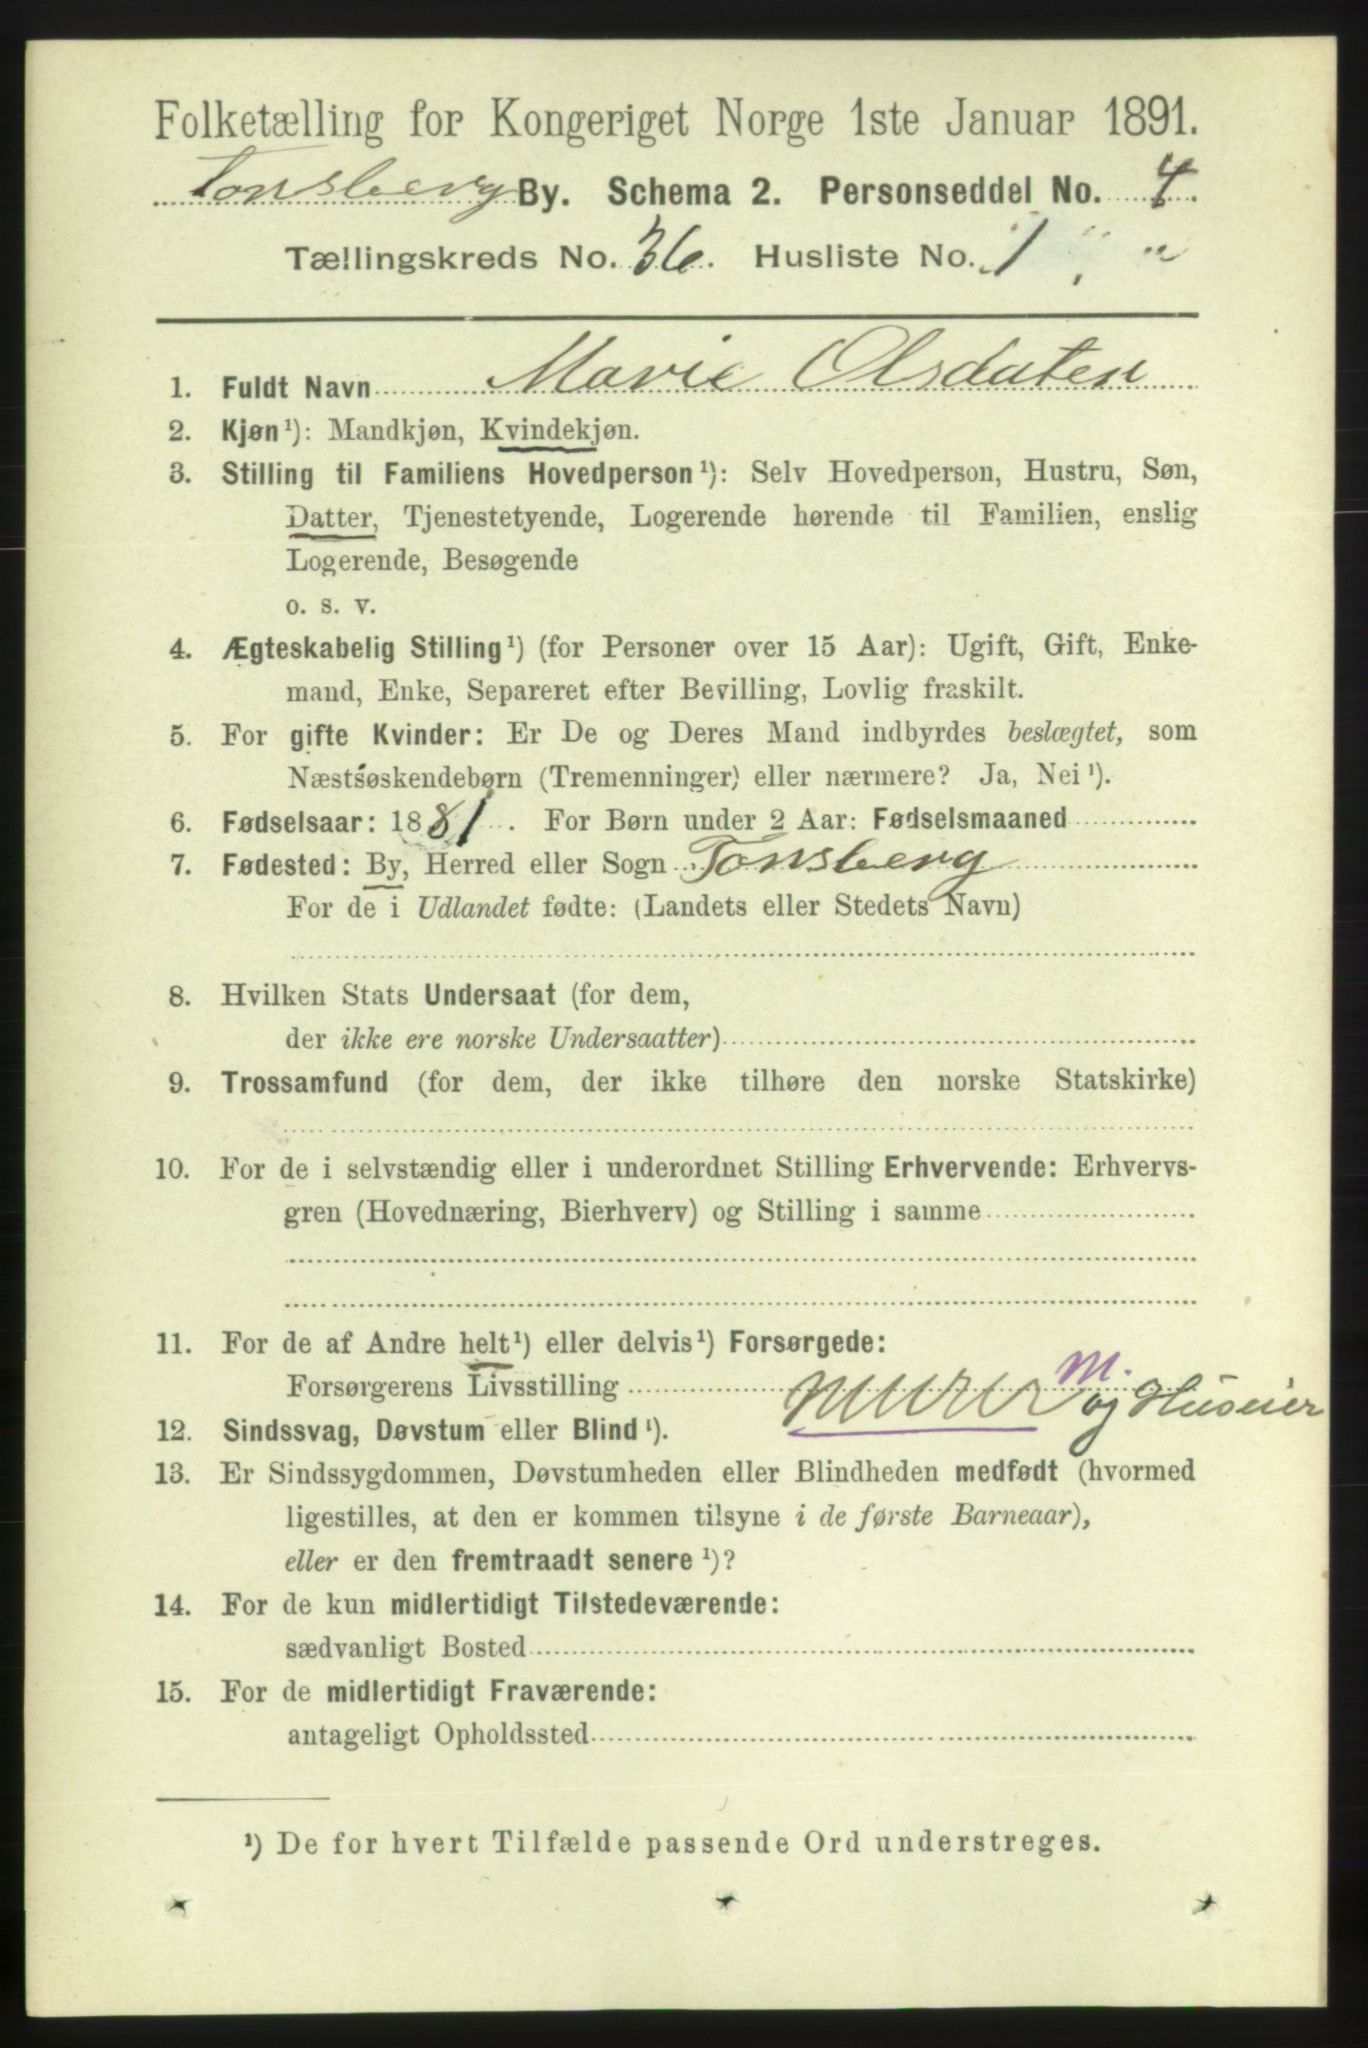 Folketælling for Kongeriget Norge 1ste Januar 1891.
Tonsberg By. Schema 2. Personseddel No. 4.
Tællingskreds No. 36. Husliste No. 1 "
1. Fuldt Navn Marie Olsdaten
2. Kjøn¹): Mandkjøn, Kvindekjøn.
3. Stilling til Familiens Hovedperson¹): Selv Hovedperson, Hustru, Søn,
Datter, Tjenestetyende, Logerende hørende til Familien, enslig
Logerende, Besøgende
o. s. v.
4. Ægteskabelig Stilling¹) (for Personer over 15 Aar): Ugift, Gift, Enke-
mand, Enke, Separeret efter Bevilling, Lovlig fraskilt.
5. For gifte Kvinder: Er De og Deres Mand indbyrdes beslægtet, som
Næstsøskendebørn (Tremenninger) eller nærmere? Ja, Nei¹).
6. Fødselsaar: 1881. For Børn under 2 Aar: Fødselsmaaned
7. Fødested: By, Herred eller Sogn Tonsberg
For de i Udlandet fødte: (Landets eller Stedets Navn)
8. Hvilken Stats Undersaat (for dem,
der ikke ere norske Undersaatter)
9. Trossamfund (for dem, der ikke tilhøre den norske Statskirke)
10. For de i selvstændig eller i underordnet Stilling Erhvervende: Erhvervs-
gren (Hovednæring, Bierhverv) og Stilling i samme
11. For de af Andre helt¹) eller delvis¹) Forsørgede:
Forsørgerens Livsstilling Murer M. og Huseier
12. Sindssvag, Døvstum eller Blind¹).
13. Er Sindssygdommen, Døvstumheden eller Blindheden medfødt (hvormed
ligestilles, at den er kommen tilsyne i de første Barneaar),
eller er den fremtraadt senere¹)?
14. For de kun midlertidigt Tilstedeværende:
sædvanligt Bosted
15. For de midlertidigt Fraværende:
antageligt Opholdssted
¹) De for hvert Tilfælde passende Ord understreges.